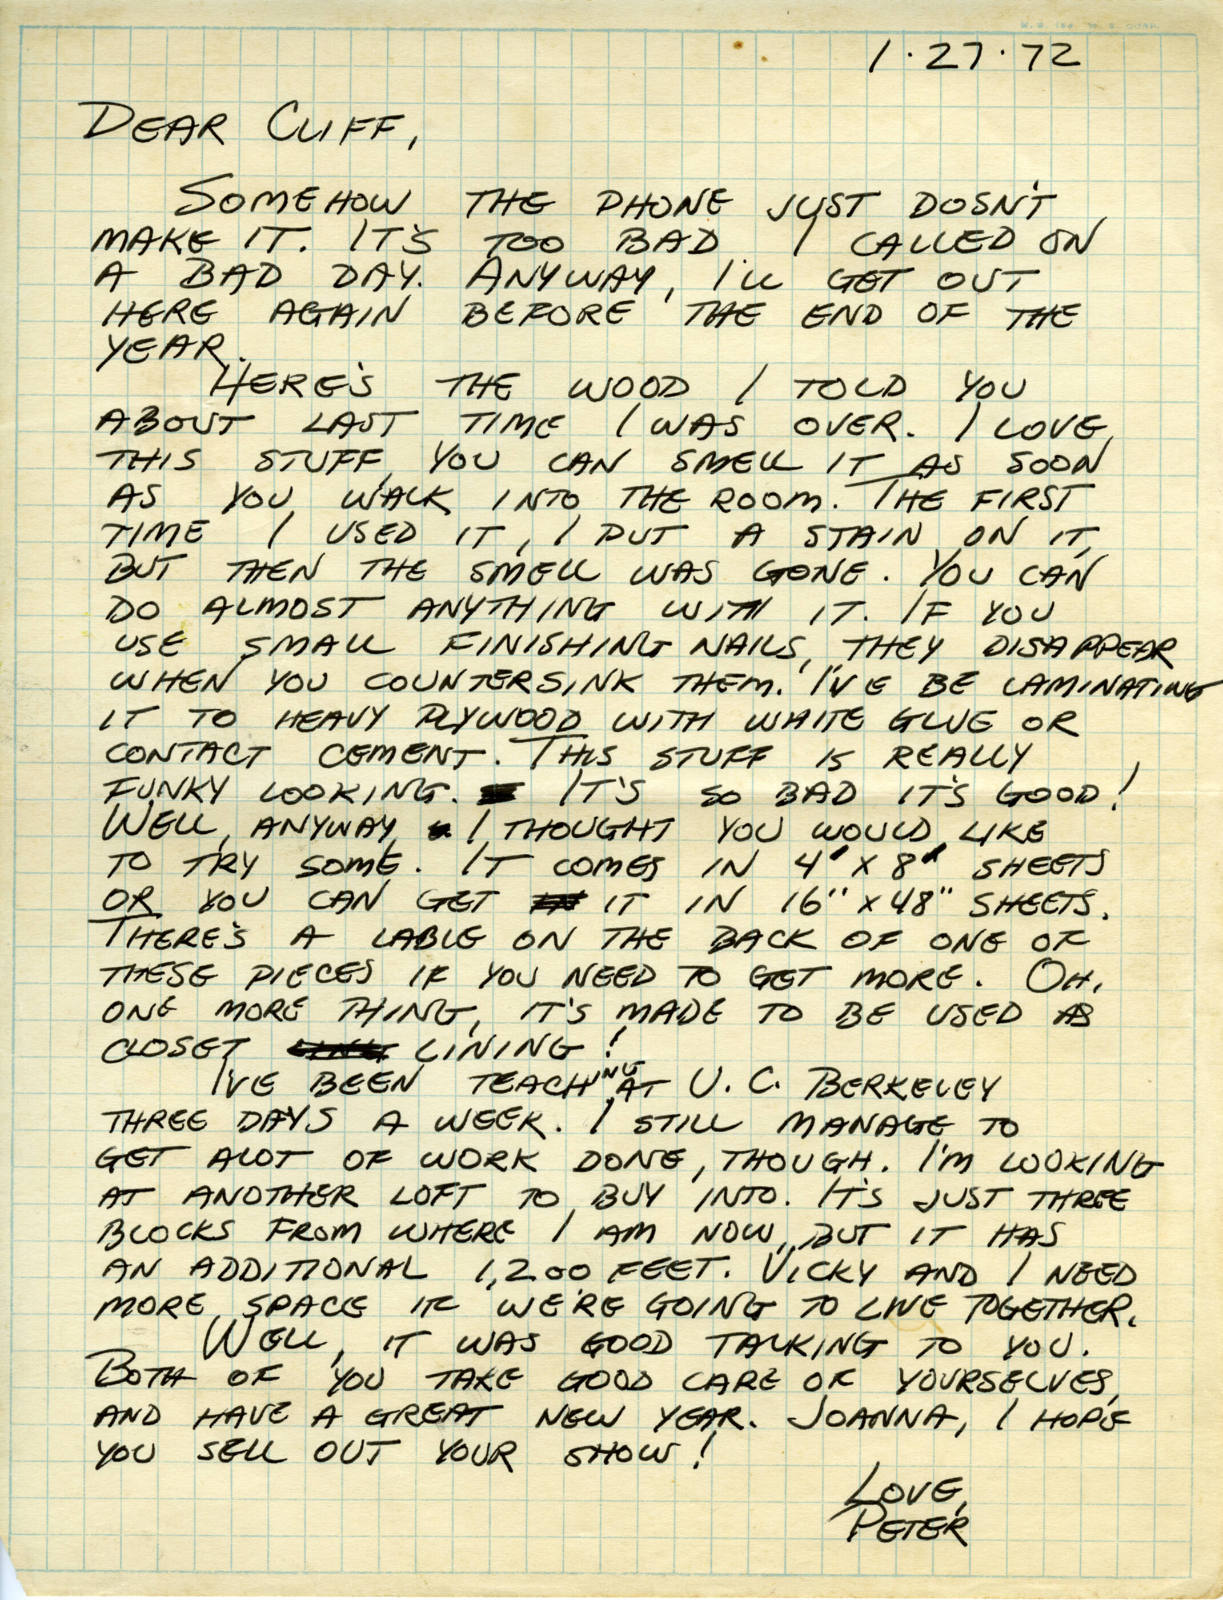 1·27·72
DEAR CLIFF,
SOMEHOW THE PHONE JUST DOSN'T
MAKE IT. IT'S TOO BAD I CALLED ON
A BAD DAY. ANYWAY, I'LL GET OUT
HERE AGAIN BEFORE THE END OF THE
YEAR.
HERE'S THE WOOD I TOLD YOU
ABOUT LAST TIME I WAS OVER. I LOVE
THIS STUFF, YOU CAN SMELL IT AS SOON
AS YOU WALK INTO THE ROOM. THE FIRST
TIME I USED IT, I PUT A STAIN ON IT,
BUT THEN THE SMELL WAS GONE. YOU CAN
DO ALMOST ANYTHING WITH IT. IF YOU
USE SMALL FINISHING NAILS, THEY DISAPPEAR
WHEN YOU COUNTERSINK THEM. I'VE BE LAMINATING
IT TO HEAVY PLYWOOD WITH WHITE GLUE OR
CONTACT CEMENT. THIS STUFF IS REALLY
FUNKY LOOKING. IT'S SO BAD IT'S GOOD!
WELL, ANYWAY, I THOUGHT YOU WOULD LIKE
TO TRY SOME. IT COMES IN 4' X 8' SHEETS
OR YOU CAN GET IT IN 16" X 48" SHEETS.
THERE'S A LABLE ON THE BACK OF ONE OF
THESE PIECES IF YOU NEED TO GET MORE. OH,
ONE MORE THING, IT'S MADE TO BE USED AS
CLOSET LINING!
I'VE BEEN TEACHING AT U.C. BERKELEY
THREE DAYS A WEEK. I STILL MANAGE TO
GET ALOT OF WORK DONE, THOUGH. I'M LOOKING
AT ANOTHER LOFT TO BUY INTO. IT'S JUST THREE
BLOCKS FROM WHERE I AM NOW, BUT IT HAS
AN ADDITIONAL 1,200 FEET. VICKY AND I NEED
MORE SPACE IF WE'RE GOING TO LIVE TOGETHER.
WELL, IT WAS GOOD TALKING TO YOU.
BOTH OF YOU TAKE GOOD CARE OF YOURSELVES,
AND HAVE A GREAT NEW YEAR. JOANNA, I HOPE
YOU SELL OUT YOUR SHOW!
LOVE,
PETER